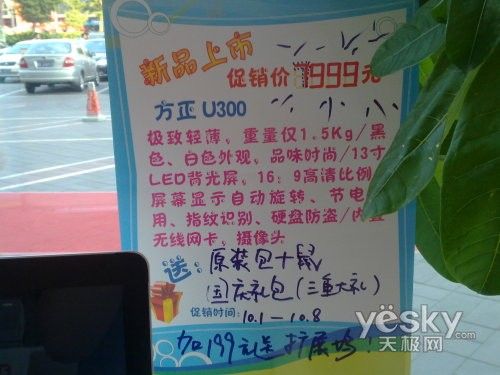 新品上市
促销价:1999元
方正 U300
极致轻薄，重量仅1.5Kg/黑
色、白色外观，品味时尚/13寸
LED背光屏，16：9高清比例
屏幕显示自动旋转、节电
用、指纹识别、硬盘防盗/内置
无线网卡，摄像头
送：原装包+鼠
国庆礼包(三重大礼)
促销时间：10.1—10.8
加199元送扩展坞！
yesky
天极网